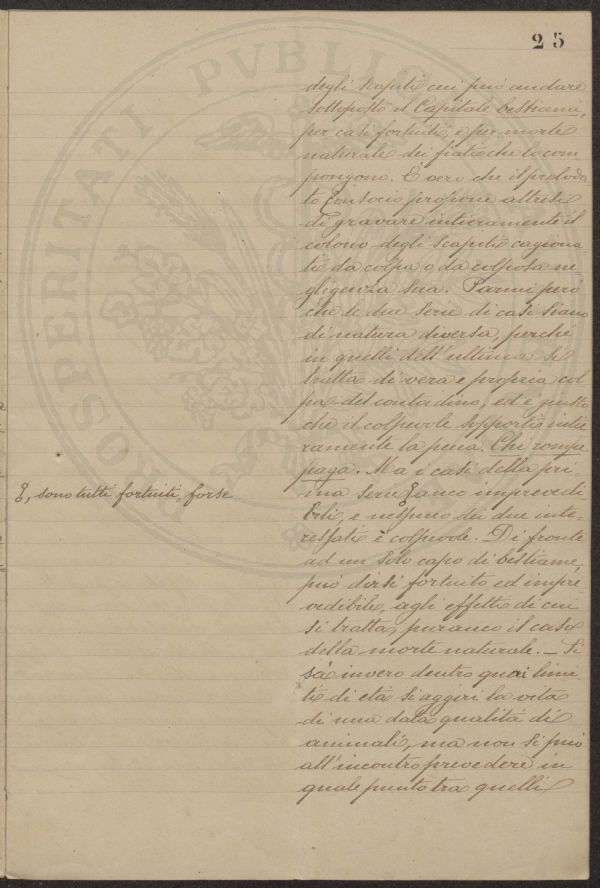 25
PROSPERITATI PVBLI
degli scapiti cui può andare
sottoposto il Capitale bestiami,
per casi fortuiti, e per morte
naturale dei fiati che lo com
pongono. È vero che il preloda
to Consocio propone altresì
di gravare intieramente il
colono degli scapiti cagiona
ti da colpa o da colposa ne-
gligenza sua. Parmi però
che le due serie di casi siano
di natura diversa, perchè
in quelli dell'ultima si
tratta di vera e propria col
pa del contadino, ed è giusto
che il colpevole sopporti intie
ramente la pena. Chi rompe
paga. Ma i casi della pri
, sono tutti fortuiti, forse
ma serie anco imprevedi
bili, e nessuno dei due inte-
ressati è colpevole. Di fronte
ad un solo capo di bestiame,
può dirsi fortuito ed impre-
vedibile, agli effetti di cui
si tratta, puranco il caso
della morte naturale. — Si
sà invero dentro quai limi
ti di età si aggiri la vita
di una data qualità di
animali, ma non si può
all'incontro prevedere in
quale punto tra quelli